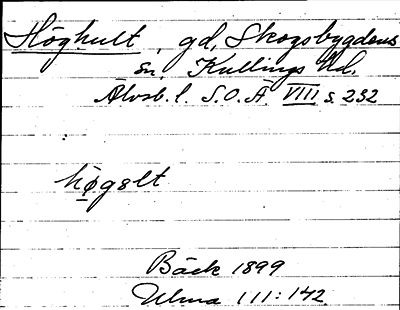 Höghult, gd, Skogsbygdens
sn, Kullings hd,
Älvsb. l. S.O.Ä VIII s. 232
høgølt
Bäck 1899
Ulma 111:142